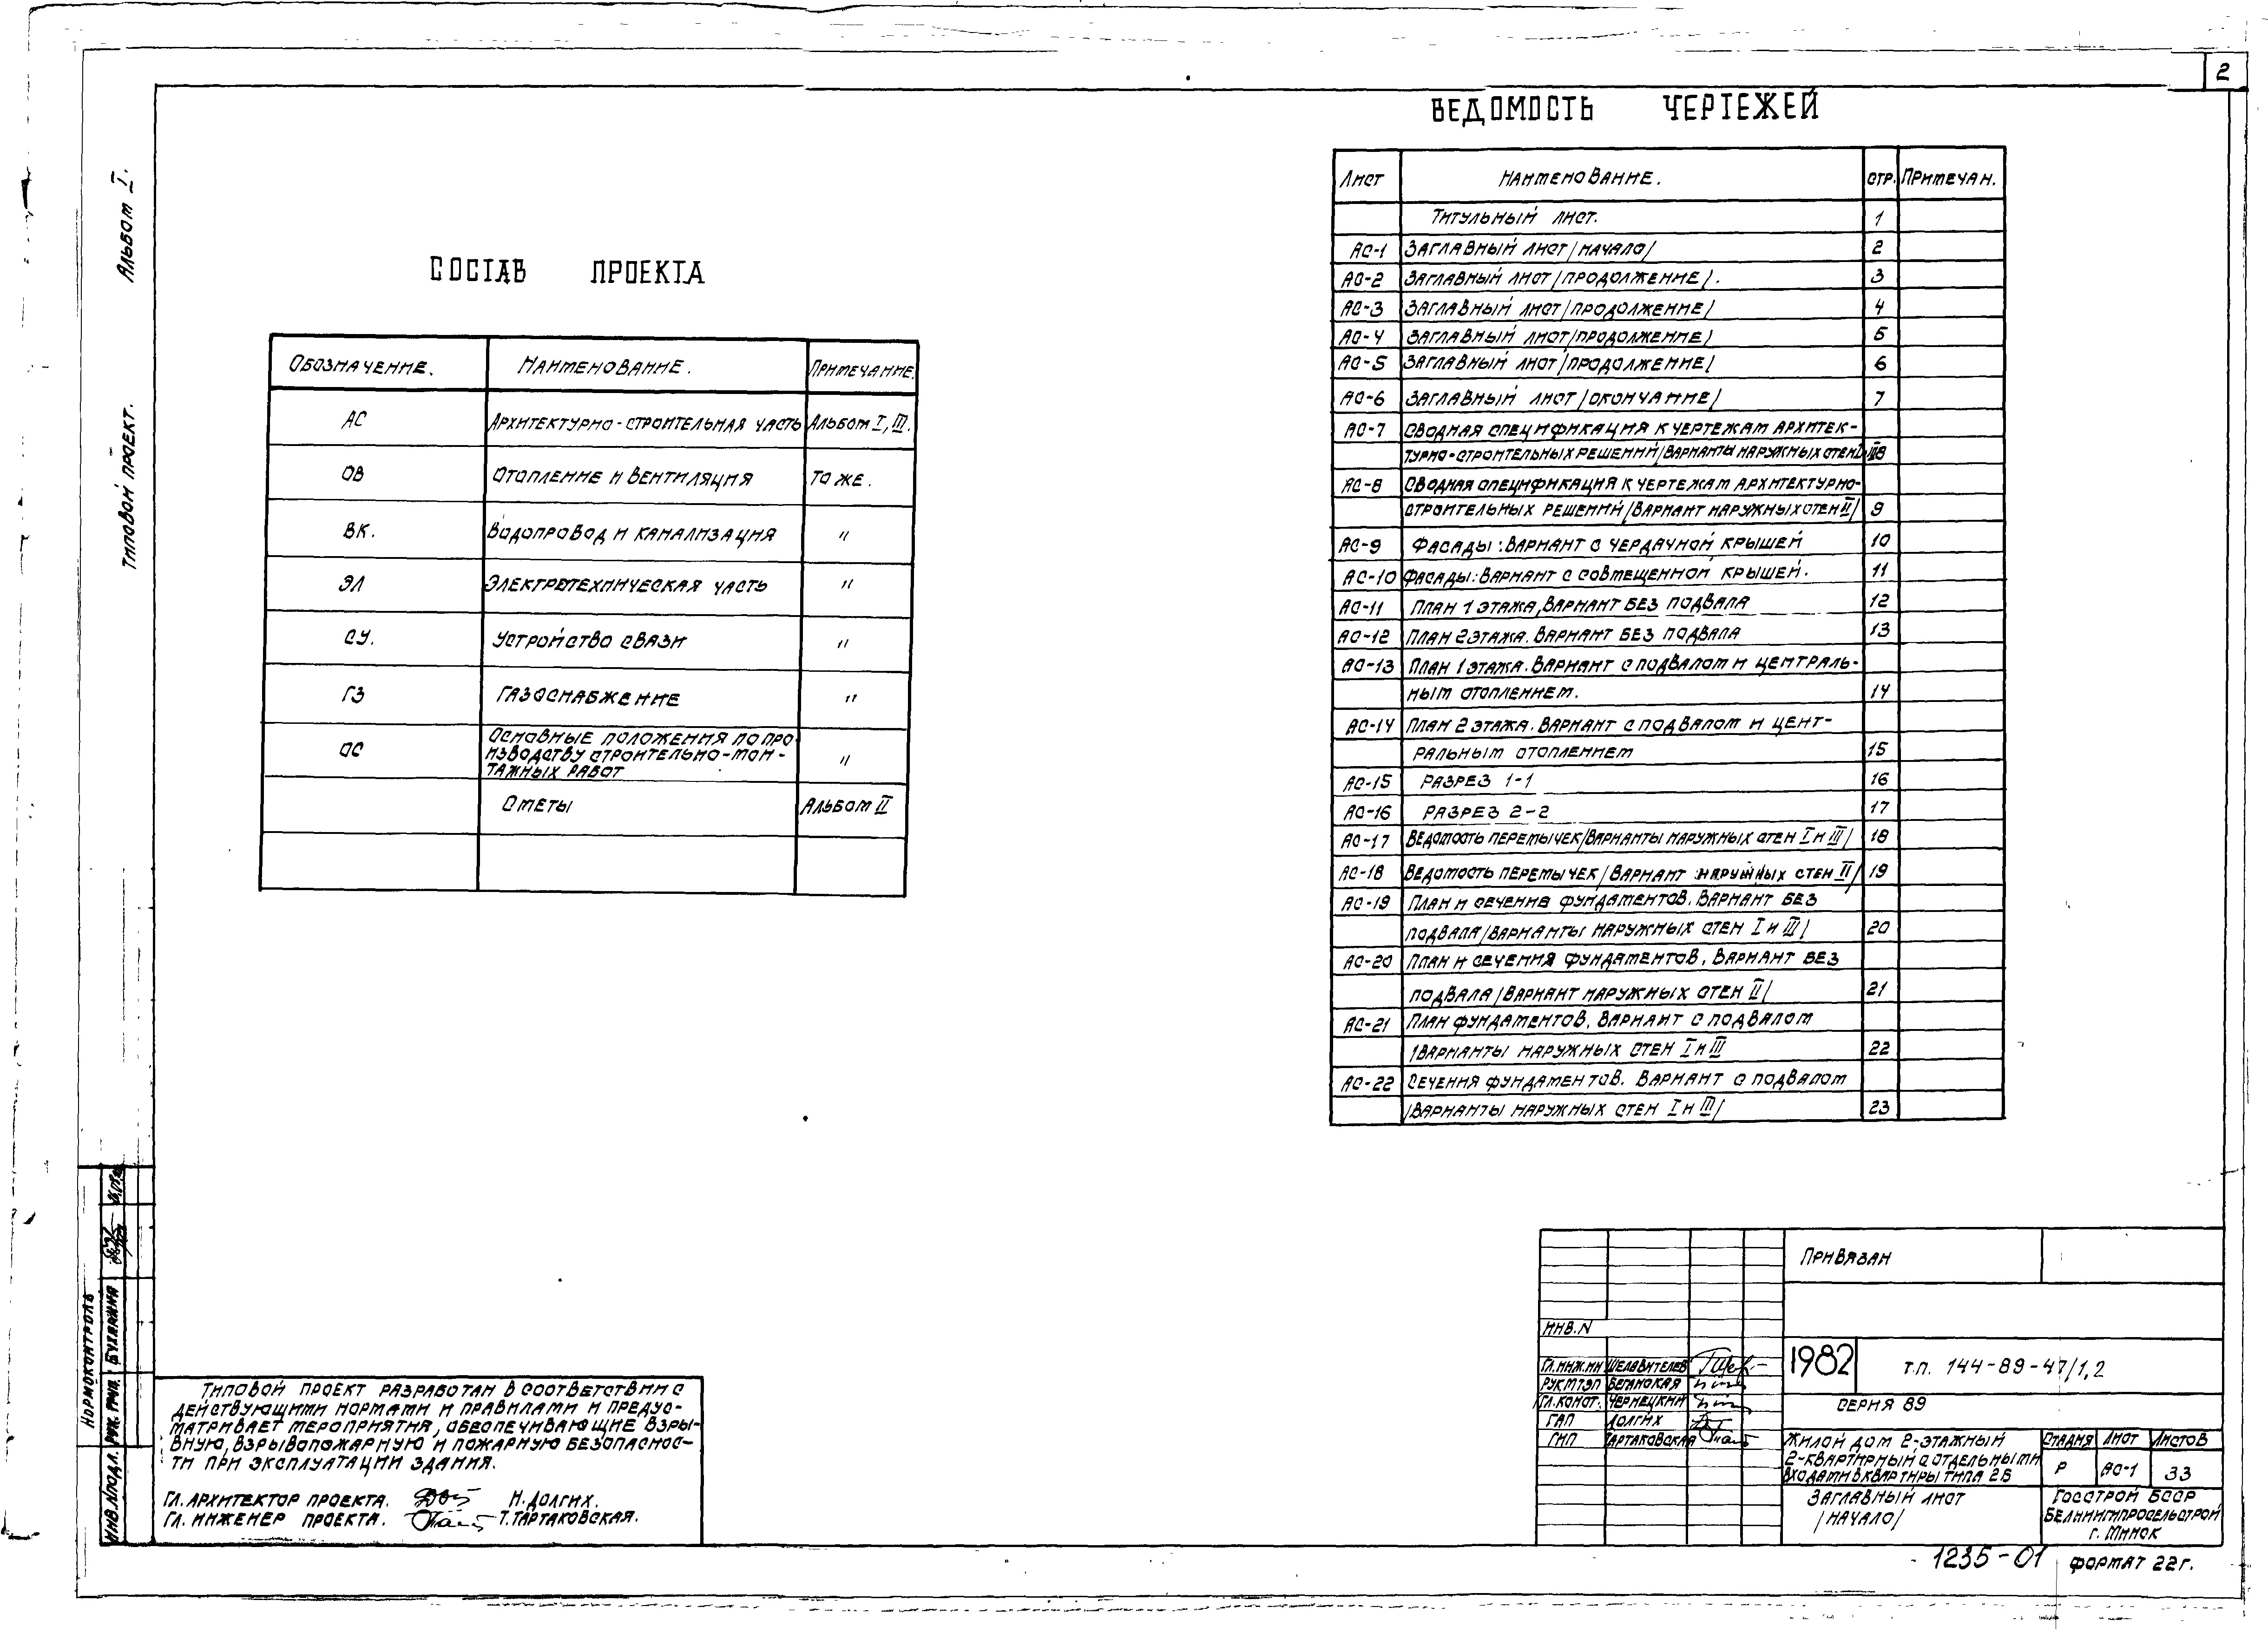 2
Альбом I.
Типовой проект.
СОСТАВ ПРОЕКТА
Обозначение. Наименование. Примечание.
АС Архитектурно-строительная часть Альбом I, III.
ОВ Отопление и вентиляция То же.
ВК. Водопровод и канализация "
ЭЛ Электротехническая часть "
СУ. Устройство связи "
ГЗ Газоснабжение "
ОС Основные положения по про-
изводству строительно-мон-
тажных работ "
Сметы Альбом II
ВЕДОМОСТЬ ЧЕРТЕЖЕЙ
Лист Наименование. стр. Примечан.
Титульный лист. 1
АС-1 Заглавный лист /начало/ 2
АС-2 Заглавный лист /продолжение/. 3
АС-3 Заглавный лист /продолжение/ 4
АС-4 Заглавный лист /продолжение/ 5
АС-5 Заглавный лист /продолжение/ 6
АС-6 Заглавный лист /окончание/ 7
АС-7 Сводная спецификация к чертежам архитек-
турно-строительных решений /варианты наружных стен 8
АС-8 Сводная спецификация к чертежам архитектурно-
строительных решений /вариант наружных стен II/ 9
АС-9 Фасады: вариант с чердачной крышей 10
АС-10 Фасады: вариант с совмещенной крышей. 11
АС-11 План 1 этажа, вариант без подвала 12
АС-12 План 2 этажа. Вариант без подвала 13
АС-13 План 1 этажа. Вариант с подвалом и централь-
ным отоплением. 14
АС-14 План 2 этажа. Вариант с подвалом и цент-
ральным отоплением 15
АС-15 Разрез 1-1 16
АС-16 Разрез 2-2 17
АС-17 Ведомость перемычек /варианты наружных стен I и III/ 18
АС-18 Ведомость перемычек /вариант наружных стен II/ 19
АС-19 План и сечение фундаментов. Вариант без
подвала /варианты наружных стен I и III/ 20
АС-20 План и сечения фундаментов, вариант без
подвала /вариант наружных стен II/ 21
АС-21 План фундаментов, вариант с подвалом
/варианты наружных стен I и III 22
АС-22 Сечения фундаментов. Вариант с подвалом
/варианты наружных стен I и III/ 23
Нормоконтроль
Рук. груп. Бухаркина
Инв. N подл.
Типовой проект разработан в соответствии с
действующими нормами и правилами и предус-
матривает мероприятия, обеспечивающие взры-
вную, взрывопожарную и пожарную безопаснос-
ти при эксплуатации здания.
Гл. архитектор проекта. Н. Долгих.
Гл. инженер проекта. Т. Тартаковская.
Привязан
Инв. N
Гл. инж. ин Шелавителев
Рук мтэп Беганская
Гл. конст. Чернецкий
ГАП Долгих
ГИП Тартаковская
1982 т.п. 144-89-47/1,2
Серия 89
Жилой дом 2-этажный
2-квартирный с отдельными
входами в квартиры типа 2Б
Стадия Лист Листов
Р АС-1 33
Заглавный лист
/начало/
Госстрой БССР
Белниигипросельстрой
г. Минск
1235-01 формат 22г.